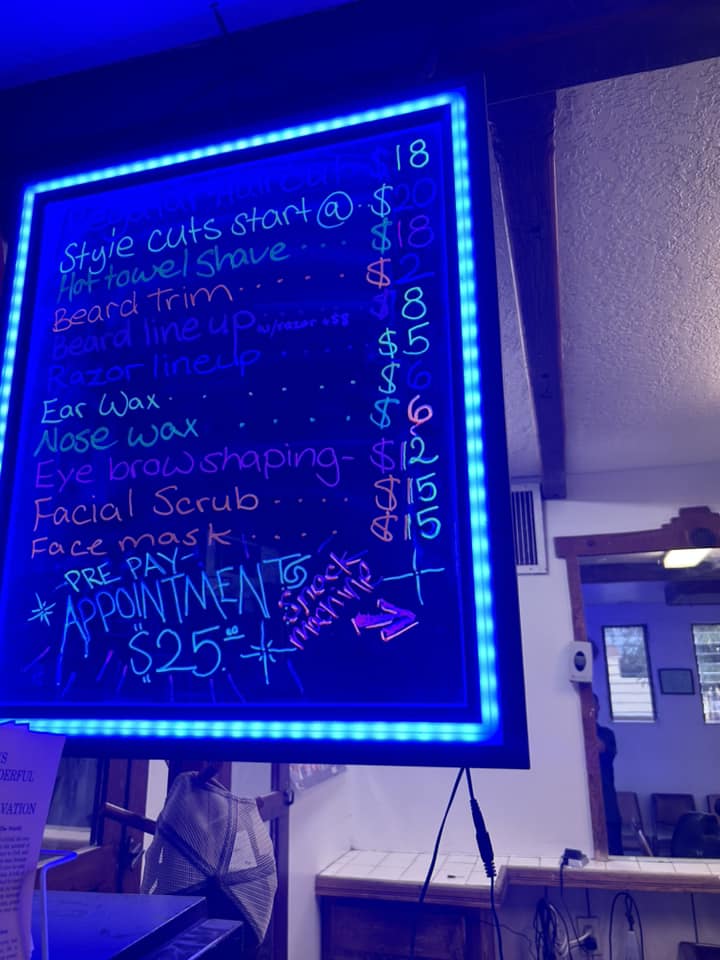 Regular Haircut $18
Style cuts start @.. $20
Hot towel shave .... $18
Beard Trim..... $2
Beard line up w/razor ..... $8
Razor lineup ..... $5
Ear Wax. . . . . $6
Nose wax . . . . $6
Eye brow shaping- $12
Facial Scrub .... $15
Face mask.... $15
PRE PAY-
APPOINTMENTS
$25.00
Snack
machine
S
DERFUL
VATION